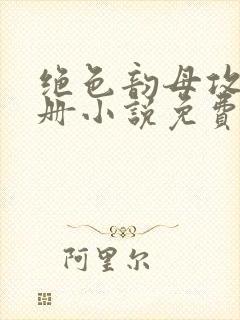 绝色韵母攻
册小说免費
阿里尔